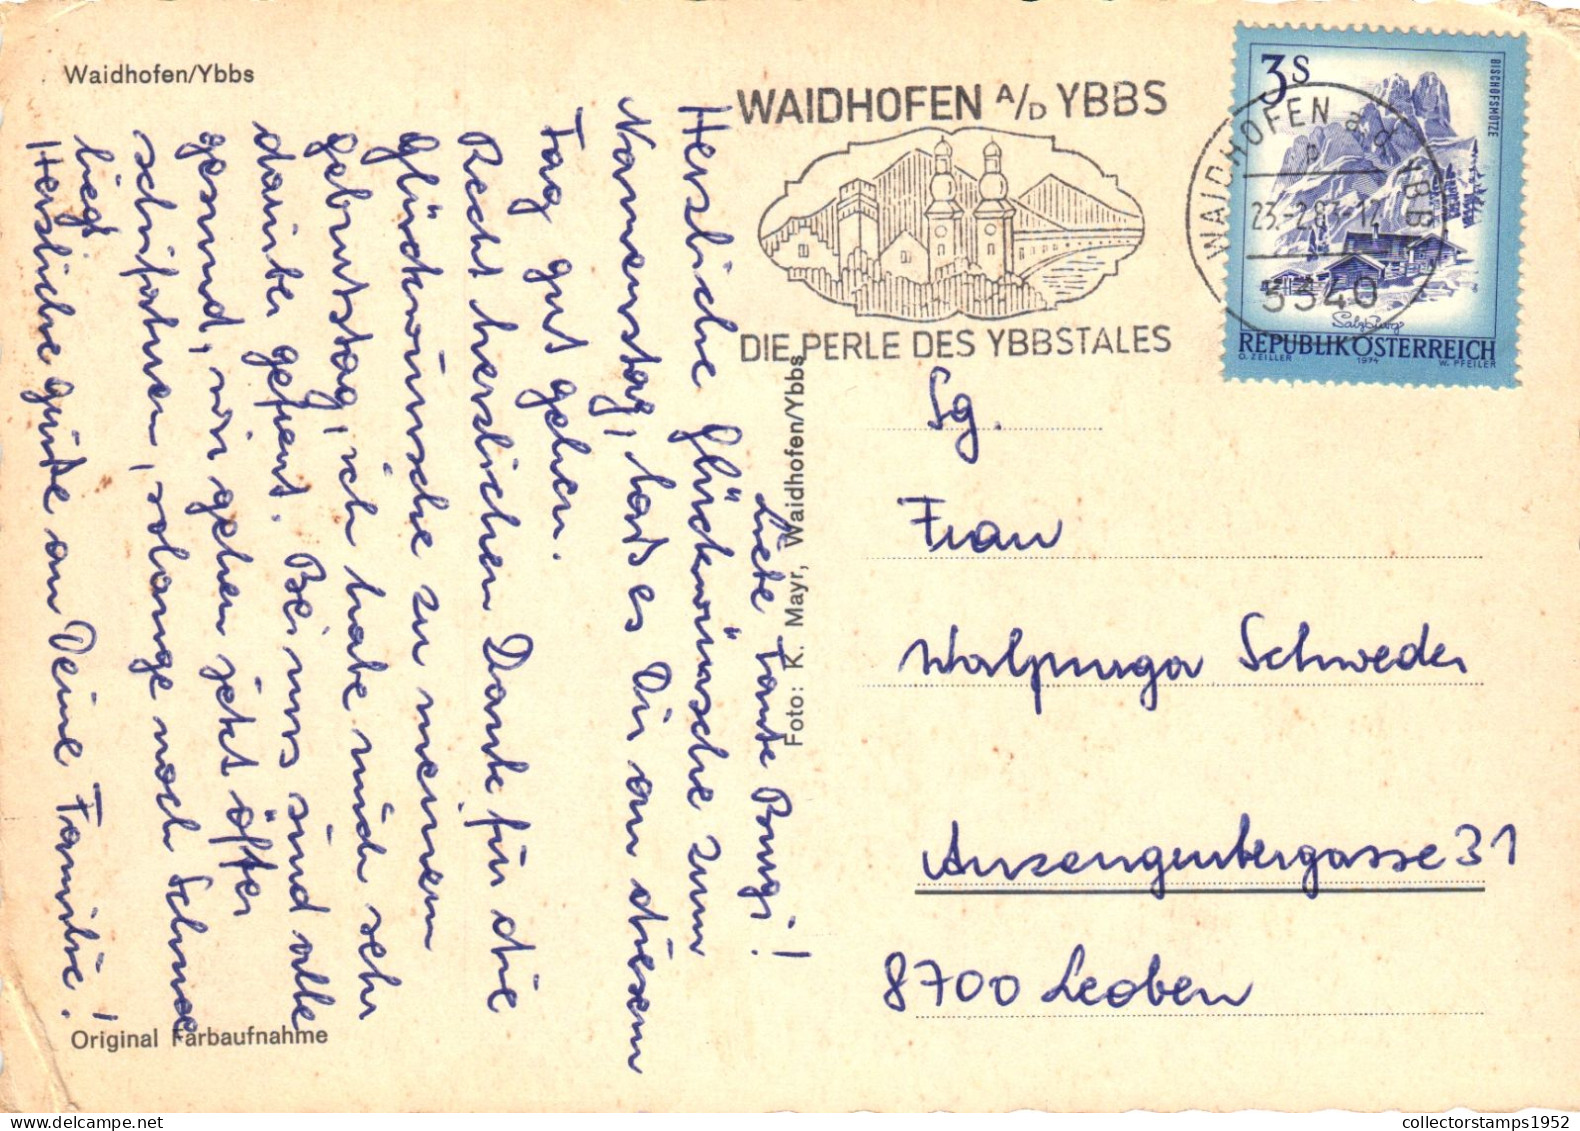 Waidhofen/Ybbs
WAIDHOFEN A/D YBBS
DIE PERLE DES YBBSTALES
WAIDHOFEN a d YBBS
23.-2.83-12
3340
3 S
BISCHOFSMÜTZE
Salzburg
REPUBLIK ÖSTERREICH
O. ZEILLER 1974 W. PFEILER
Liebe Tante Burgi!
Herzliche Glückwünsche zum
Namenstag, lass es Dir an diesem
Tag gut gehen.
Recht herzlichen Dank für die
Glückwünsche zu meinem
Geburtstag, ich habe mich sehr
darüber gefreut. Bei uns sind alle
gesund, wir gehen jetzt öfter
schifahren, solange noch Schnee
liegt.
Herzliche Grüße an Deine Familie!
Foto: K. Mayr, Waidhofen/Ybbs
Sg.
Frau
Walpurga Schweder
Anzengrubergasse 31
8700 Leoben
Original Farbaufnahme
collectorstamps1952